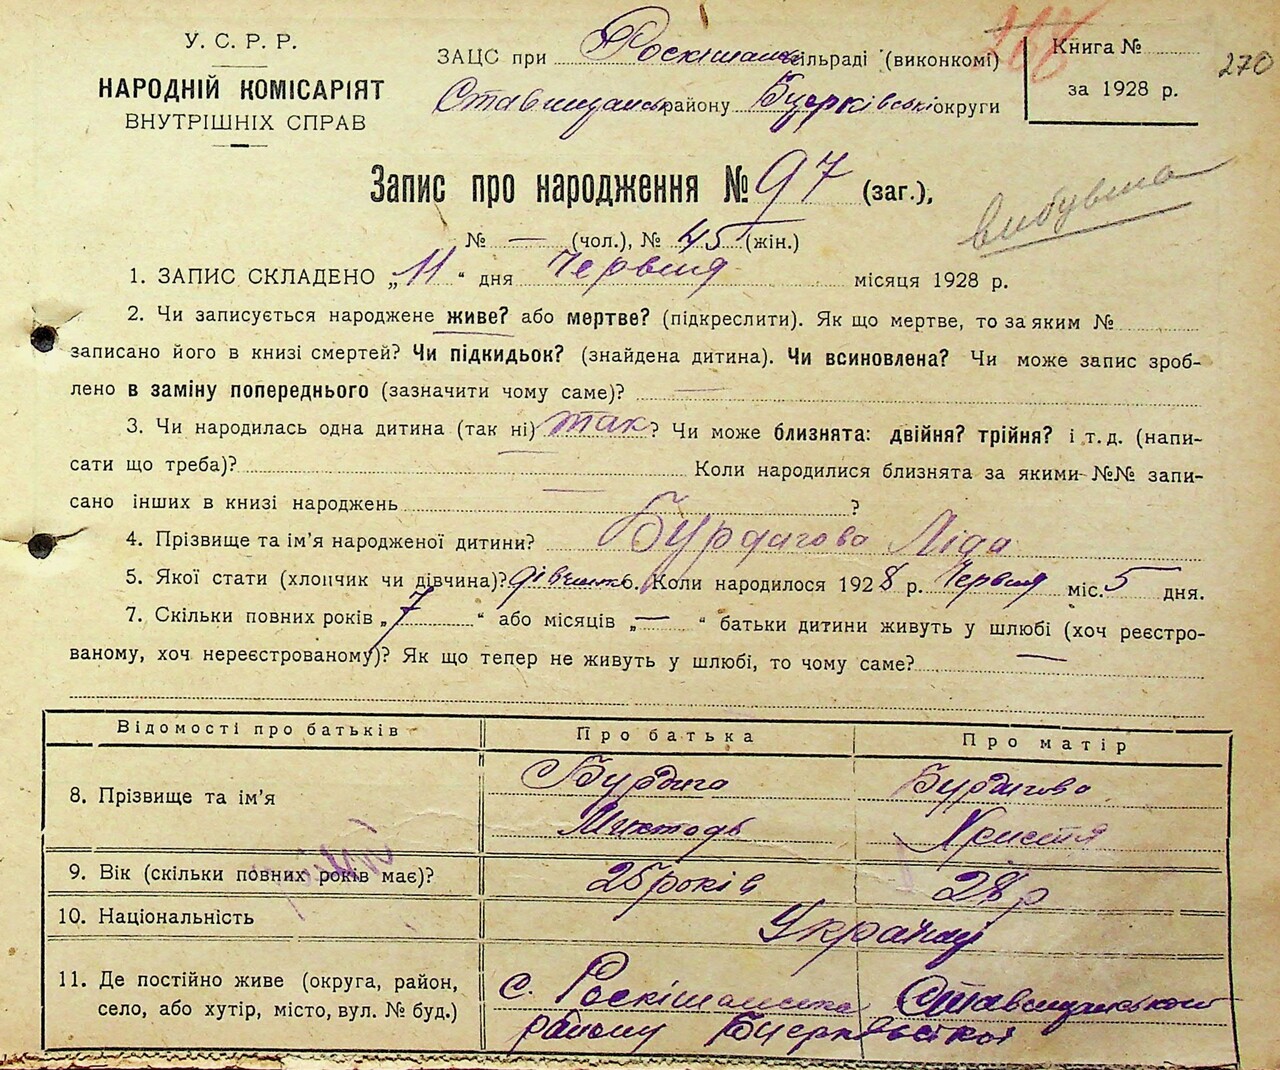 У. С. Р. Р.
НАРОДНІЙ КОМІСАРІЯТ
ВНУТРІШНІХ СПРАВ
ЗАЦС при Роскішанс сільраді (виконкомі)
Ставищанськ району Бцерківської округи
Книга №
за 1928 р.
270
Запис про народження № 97 (заг.),
№ — (чол.), № 45 (жін.)
вибувша
1. ЗАПИС СКЛАДЕНО „11“ дня Червня місяця 1928 р.
2. Чи записується народжене живе? або мертве? (підкреслити). Як що мертве, то за яким №
записано його в книзі смертей? Чи підкидьок? (знайдена дитина). Чи всиновлена? Чи може запис зроб-
лено в заміну попереднього (зазначити чому саме)? —
3. Чи народилась одна дитина (так ні) так? Чи може близнята: двійня? трійня? і т. д. (напи-
сати що треба)? Коли народилися близнята за якими №№ запи-
сано інших в книзі народжень — ?
4. Прізвище та ім'я народженої дитини? Бурдигова Ліда
5. Якої стати (хлопчик чи дівчина)? дівчинка 6. Коли народилося 1928 р. Червня міс. 5 дня.
7. Скільки повних років „7“ або місяців „—“ батьки дитини живуть у шлюбі (хоч реєстро-
ваному, хоч нереєстрованому)? Як що тепер не живуть у шлюбі, то чому саме? —
Відомості про батьків Про батька Про матір
8. Прізвище та ім'я Бурдига Бурдигова
Мнхтодь Христя
9. Вік (скільки повних років має)? 25 років 28 р
10. Національність Українці
11. Де постійно живе (округа, район, с. Роскішанська Ставищанського
село, або хутір, місто, вул. № буд.) району Бцерківської